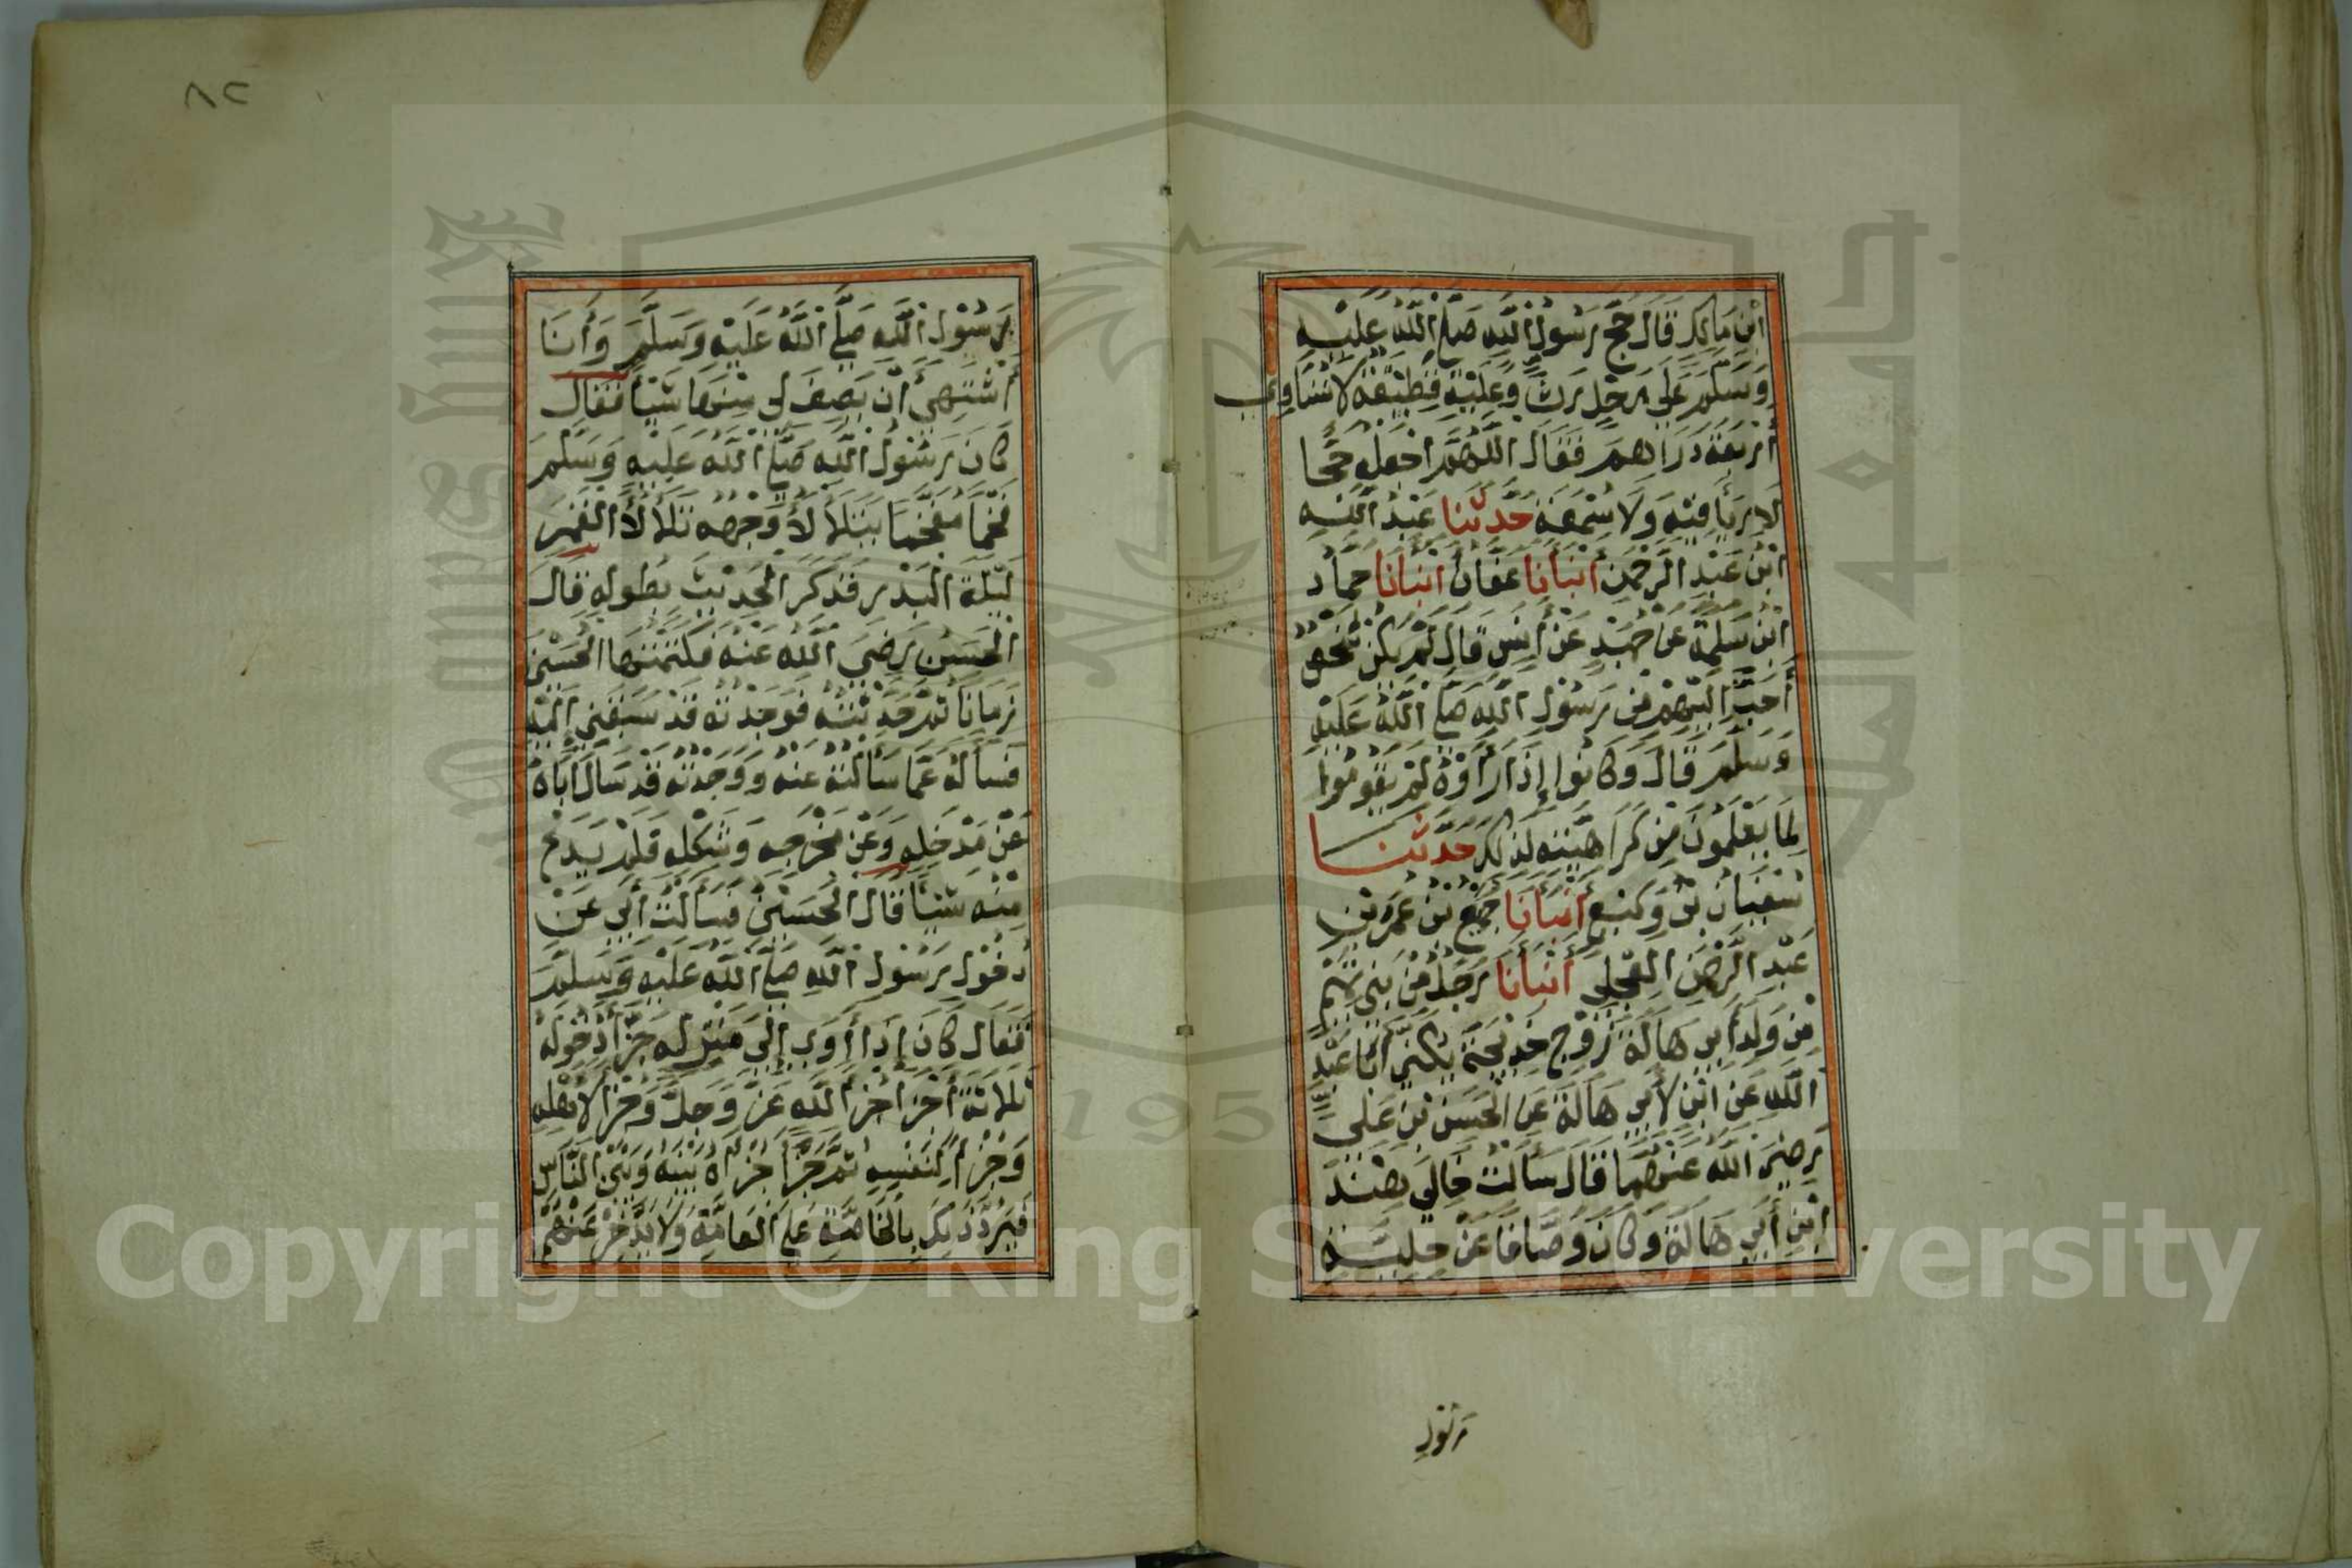 ابْنِ مَالِكٍ قَالَ حَجَّ رَسُولُ اللَّهِ صَلَّى اللَّهُ عَلَيْهِ
وَسَلَّمَ عَلَى رَحْلٍ رَثٍّ وَعَلَيْهِ قَطِيفَةٌ لَا تُسَاوِي
أَرْبَعَةَ دَرَاهِمَ فَقَالَ اللَّهُمَّ اجْعَلْهُ حَجًّا
لَا رِيَاءَ فِيهِ وَلَا سُمْعَةَ حَدَّثَنَا عَبْدُ اللَّهِ
ابْنُ عَبْدِ الرَّحْمَنِ أَنْبَأَنَا عَفَّانُ أَنْبَأَنَا حَمَّادُ
ابْنُ سَلَمَةَ عَنْ حُمَيْدٍ عَنْ أَنَسٍ قَالَ لَمْ يَكُنْ شَخْصٌ
أَحَبَّ إِلَيْهِمْ مِنْ رَسُولِ اللَّهِ صَلَّى اللَّهُ عَلَيْهِ
وَسَلَّمَ قَالَ وَكَانُوا إِذَا رَأَوْهُ لَمْ يَقُومُوا
لِمَا يَعْلَمُونَ مِنْ كَرَاهِيَتِهِ لِذَلِكَ حَدَّثَنَا
سُفْيَانُ بْنُ وَكِيعٍ أَنْبَأَنَا جُمَيْعُ بْنُ عُمَرَ بْنِ
عَبْدِ الرَّحْمَنِ الْعِجْلِيُّ أَنْبَأَنَا رَجُلٌ مِنْ بَنِي تَمِيمٍ
مِنْ وَلَدِ أَبِي هَالَةَ زَوْجِ خَدِيجَةَ يُكْنَى أَبَا عَبْدِ
اللَّهِ عَنِ ابْنٍ لِأَبِي هَالَةَ عَنِ الْحَسَنِ بْنِ عَلِيٍّ
رَضِيَ اللَّهُ عَنْهُمَا قَالَ سَأَلْتُ خَالِي هِنْدَ
ابْنَ أَبِي هَالَةَ وَكَانَ وَصَّافًا عَنْ حِلْيَةِ
رسُول
٨٢
رَسُولِ اللَّهِ صَلَّى اللَّهُ عَلَيْهِ وَسَلَّمَ وَأَنَا
أَشْتَهِي أَنْ يَصِفَ لِي مِنْهَا شَيْئًا فَقَالَ
كَانَ رَسُولُ اللَّهِ صَلَّى اللَّهُ عَلَيْهِ وَسَلَّمَ
فَخْمًا مُفَخَّمًا يَتَلَأْلَأُ وَجْهُهُ تَلَأْلُأَ الْقَمَرِ
لَيْلَةَ الْبَدْرِ فَذَكَرَ الْحَدِيثَ بِطُولِهِ قَالَ
الْحَسَنُ رَضِيَ اللَّهُ عَنْهُ فَكَتَمْتُهَا الْحُسَيْنَ
زَمَانًا ثُمَّ حَدَّثْتُهُ فَوَجَدْتُهُ قَدْ سَبَقَنِي إِلَيْهِ
فَسَأَلَهُ عَمَّا سَأَلْتُهُ عَنْهُ وَوَجَدْتُهُ قَدْ سَأَلَ أَبَاهُ
عَنْ مَدْخَلِهِ وَعَنْ مَخْرَجِهِ وَشَكْلِهِ فَلَمْ يَدَعْ
مِنْهُ شَيْئًا قَالَ الْحُسَيْنُ فَسَأَلْتُ أَبِي عَنْ
دُخُولِ رَسُولِ اللَّهِ صَلَّى اللَّهُ عَلَيْهِ وَسَلَّمَ
فَقَالَ كَانَ إِذَا أَوَى إِلَى مَنْزِلِهِ جَزَّأَ دُخُولَهُ
ثَلَاثَةَ أَجْزَاءٍ جُزْءًا لِلَّهِ عَزَّ وَجَلَّ وَجُزْءًا لِأَهْلِهِ
وَجُزْءًا لِنَفْسِهِ ثُمَّ جَزَّأَ جُزْأَهُ بَيْنَهُ وَبَيْنَ النَّاسِ
فَيَرُدُّ ذَلِكَ بِالْخَاصَّةِ عَلَى الْعَامَّةِ وَلَا يَدَّخِرُ عَنْهُمْ
Copyright © King Saud University
195